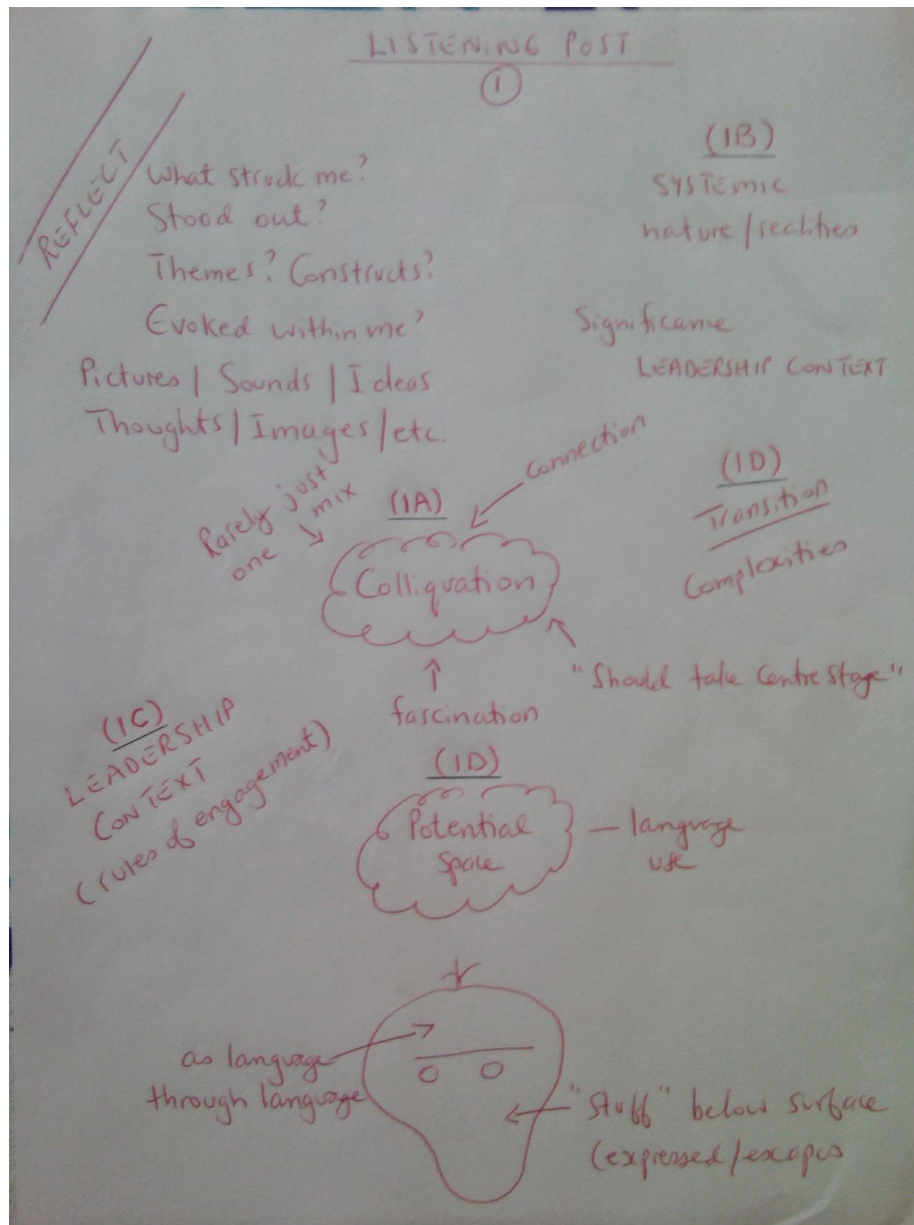 LISTENING POST
1
REFLECT
What struck me?
Stood out?
Themes? Constructs?
Evoked within me?
Pictures / Sounds / Ideas
Thoughts / Images / etc.
(1B)
SYSTEMIC
nature / realities
Significance
LEADERSHIP CONTEXT
Rarely just
one mix
(1A)
Colliquation
Connection
"Should take centre stage"
fascination
(1D)
Transition
Complexities
(1C)
LEADERSHIP
CONTEXT
(rules of engagement)
(1D)
Potential
space
— language
use
as language
through language
"Stuff" below surface
(expressed/escapes